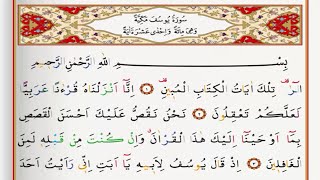 سُورَةُ يُوسُفَ مَكِّيَّةٌ
وَهِيَ مِائَةٌ وَاِحْدٰى عَشْرَةَ اٰيَةً
بِسْمِ اللّٰهِ الرَّحْمٰنِ الرَّحِيمِ
الٓرٰ تِلْكَ اٰيَاتُ الْكِتَابِ الْمُبِينِ ۝ اِنَّٓا اَنْزَلْنَاهُ قُرْءٰنًا عَرَبِيًّا
لَعَلَّكُمْ تَعْقِلُونَ ۝ نَحْنُ نَقُصُّ عَلَيْكَ اَحْسَنَ الْقَصَصِ
بِمَٓا اَوْحَيْنَٓا اِلَيْكَ هٰذَا الْقُرْاٰنَ وَاِنْ كُنْتَ مِنْ قَبْلِهٖ لَمِنَ
الْغَافِلِينَ ۝ اِذْ قَالَ يُوسُفُ لِاَبِيهِ يَٓا اَبَتِ اِنّٖي رَاَيْتُ اَحَدَ